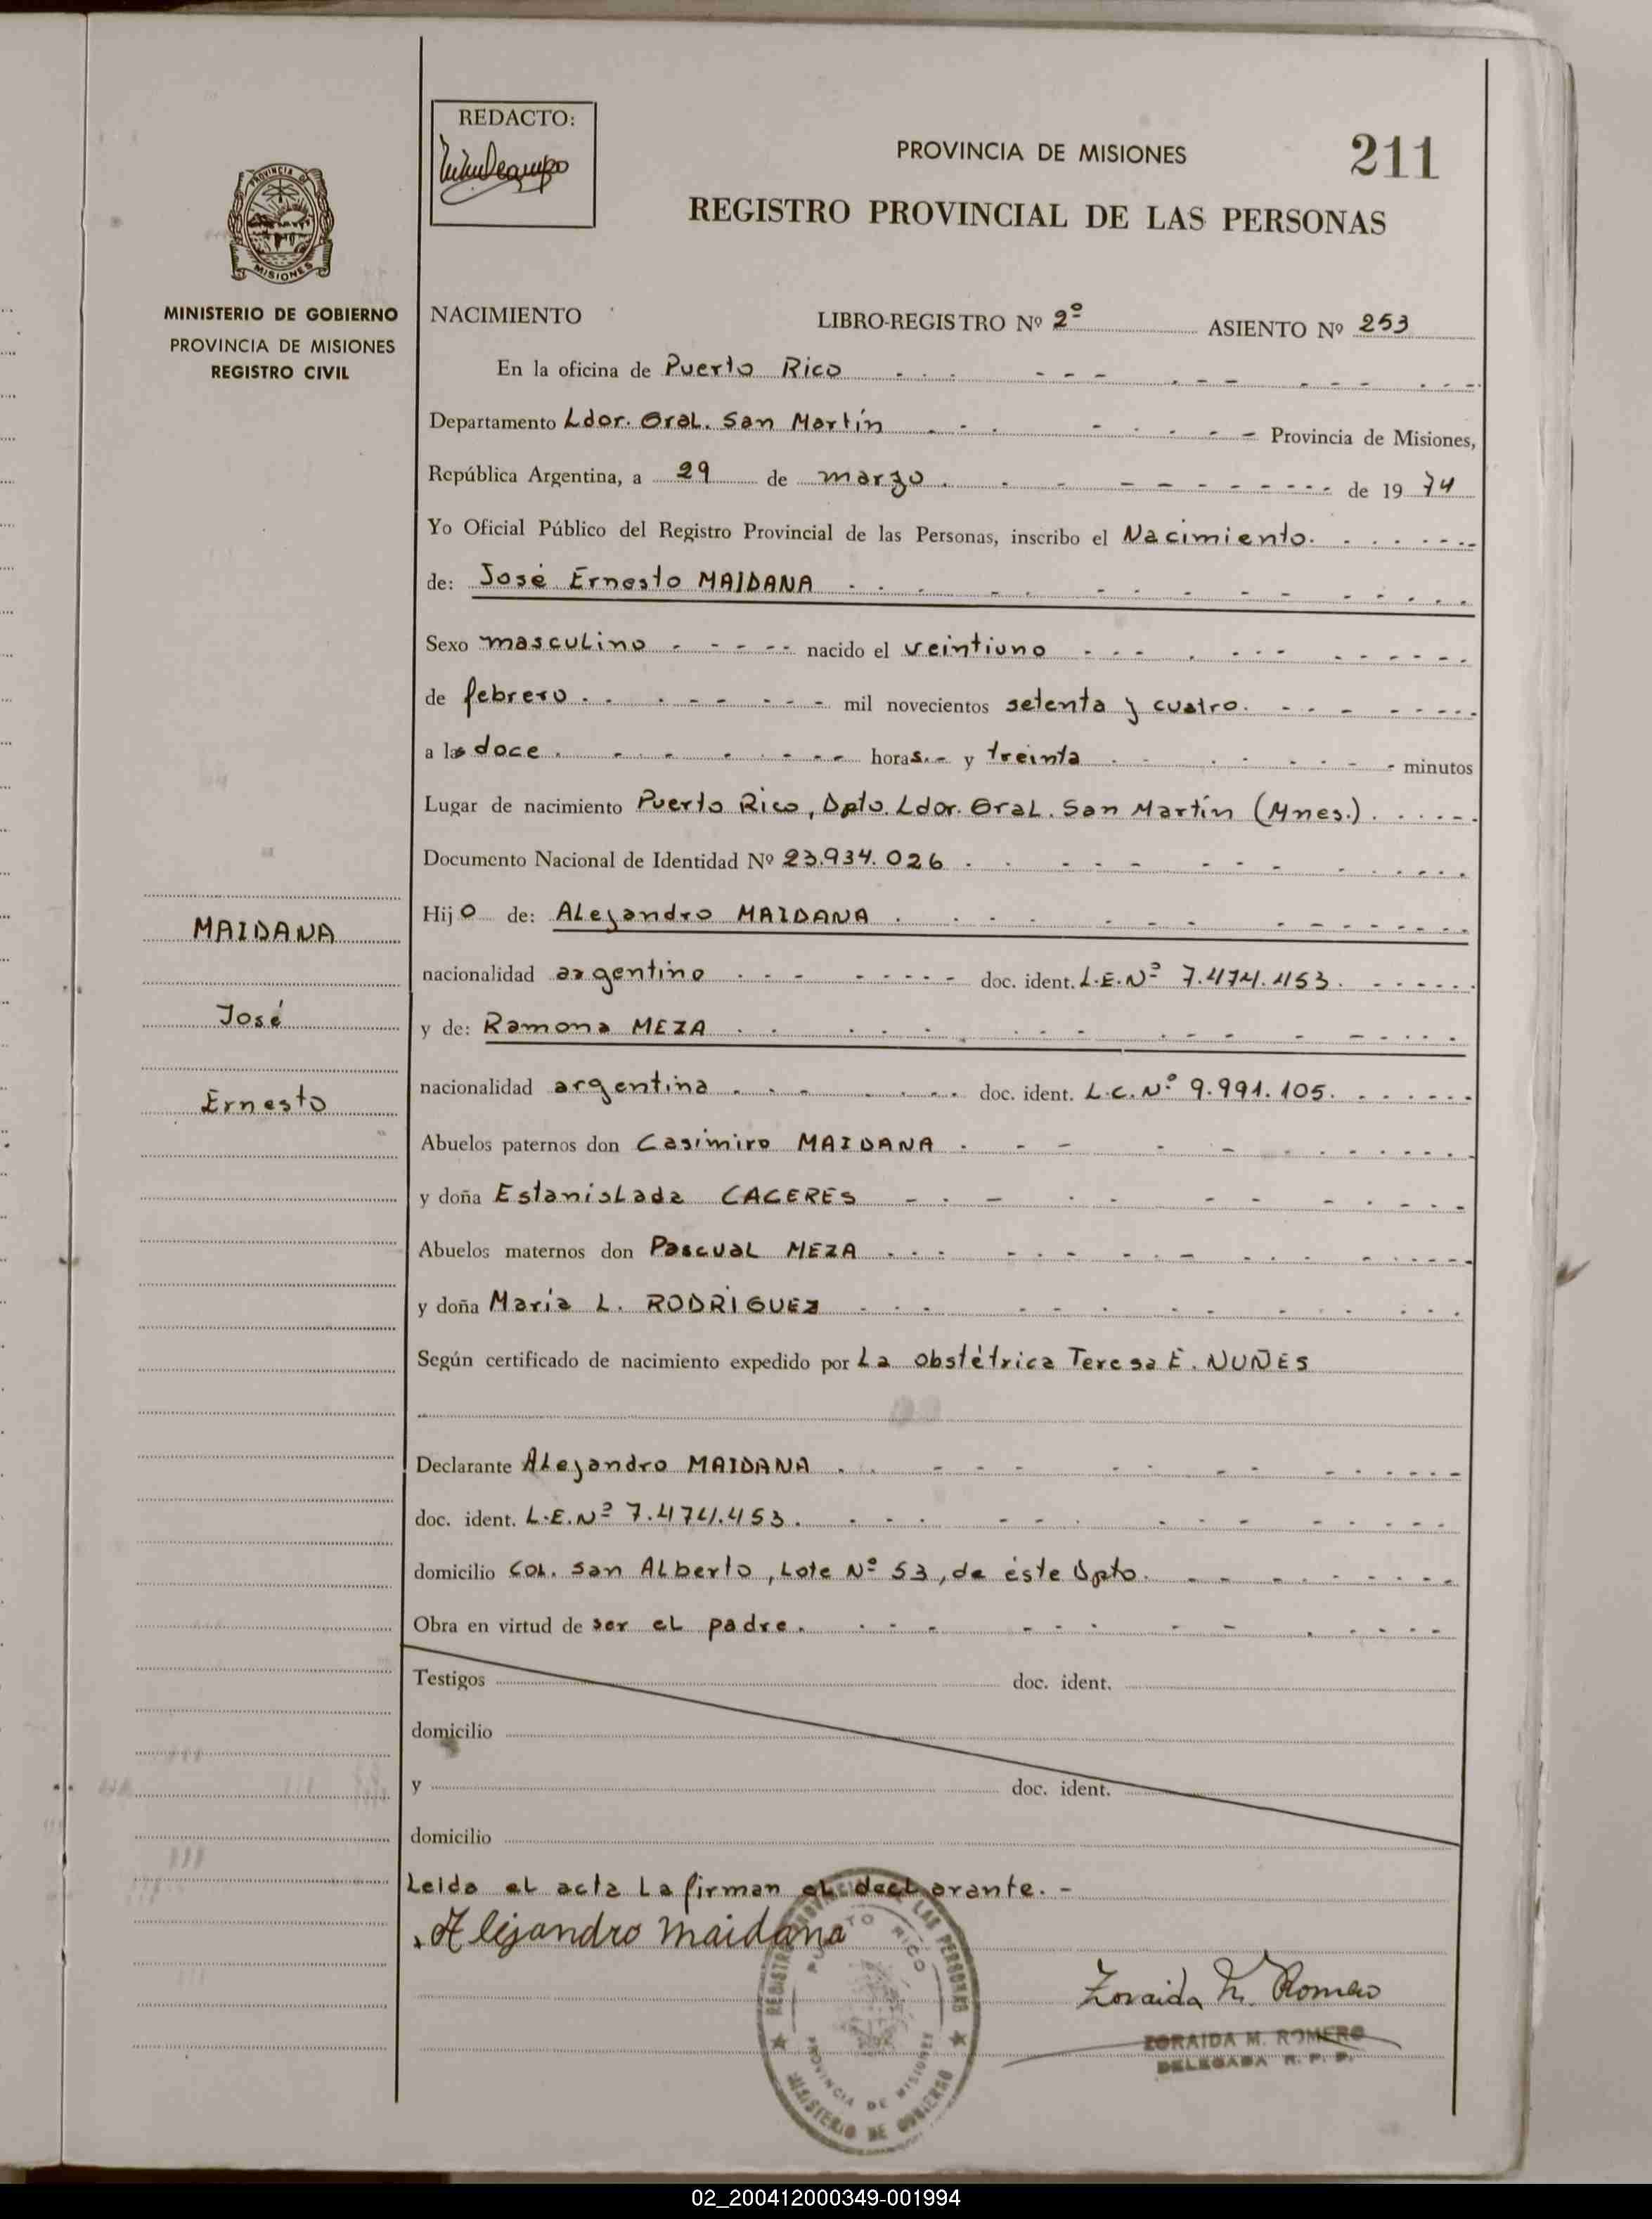 REDACTO:
PROVINCIA DE MISIONES
211
REGISTRO PROVINCIAL DE LAS PERSONAS
PROVINCIA DE
MISIONES
MINISTERIO DE GOBIERNO
PROVINCIA DE MISIONES
REGISTRO CIVIL
MAIDANA
José
Ernesto
NACIMIENTO LIBRO-REGISTRO Nº 2º ASIENTO Nº 253
En la oficina de Puerto Rico
Departamento Ldor. Gral. San Martín Provincia de Misiones,
República Argentina, a 29 de marzo de 1974
Yo Oficial Público del Registro Provincial de las Personas, inscribo el Nacimiento.
de: José Ernesto MAIDANA
Sexo masculino nacido el veintiuno
de febrero mil novecientos setenta y cuatro.
a las doce horas.- y treinta minutos
Lugar de nacimiento Puerto Rico, Dpto. Ldor. Gral. San Martín (Mnes.).
Documento Nacional de Identidad Nº 23.934.026
Hijo de: Alejandro MAIDANA
nacionalidad argentino doc. ident. L.E.Nº 7.474.453.
y de: Ramona MEZA
nacionalidad argentina doc. ident. L.C.Nº 9.991.105.
Abuelos paternos don Casimiro MAIDANA
y doña Estanislada CACERES
Abuelos maternos don Pascual MEZA
y doña María L. RODRIGUEZ
Según certificado de nacimiento expedido por La obstétrica Teresa E. NUÑES
Declarante Alejandro MAIDANA
doc. ident. L.E.Nº 7.474.453.
domicilio Col. San Alberto, Lote Nº 53, de éste Dpto.
Obra en virtud de ser el padre.
Testigos doc. ident.
domicilio
y doc. ident.
domicilio
Leida el acta la firman el declarante.-
Alejandro Maidana
REGISTRO PROVINCIAL DE LAS PERSONAS
PUERTO RICO
PROVINCIA DE MISIONES
MINISTERIO DE GOBIERNO
Zoraida M. Romero
ZORAIDA M. ROMERO
DELEGADA R. P. P.
02_200412000349-001994